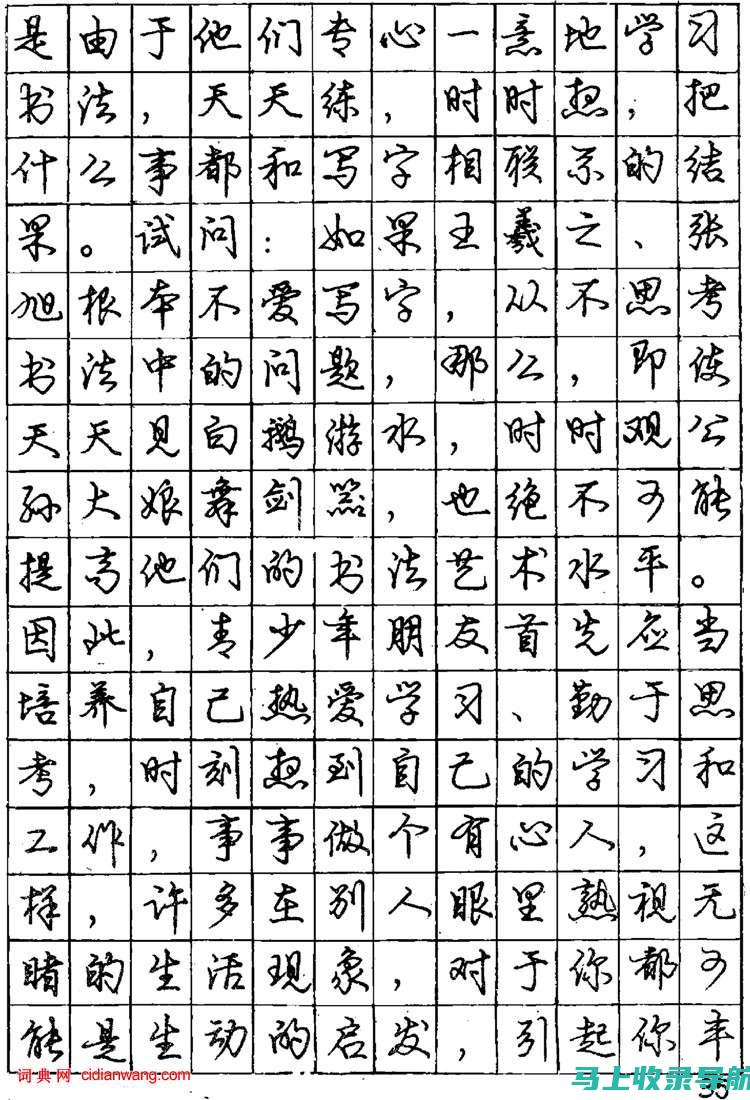 是由于他们专心一意地学习
书法，天天练，时时想，把
什么事都和写字相联系的结
果。试问：如果王羲之、张
旭根本不爱写字，从不思考
书法中的问题，那么，即使
天天见白鹅游水，时时观公
孙大娘舞剑器，也绝不可能
提高他们的书法艺术水平。
因此，青少年朋友首先应当
培养自己热爱学习、勤于思
考，时刻想到自己的学习和
工作，事事做个有心人，这
样，许多在别人眼里熟视无
睹的生活现象，对于你都可
能是生动的启发，引起你丰
词典网 cidianwang.com
马上收录导航